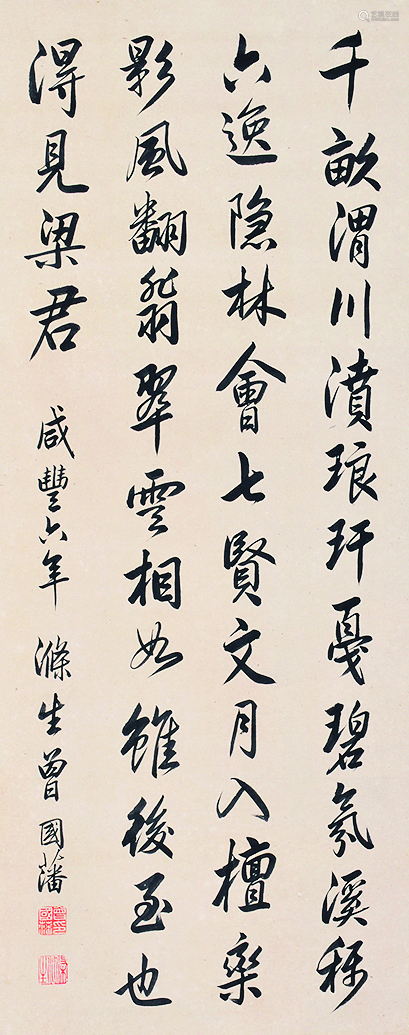 千畝渭川濆琅玕戛碧氛溪称
六逸隐林會七賢文月入檀欒
影風翻翡翠雲相如雖後至也
得見梁君 咸豐六年 滌生曾國藩